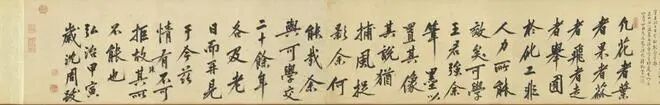 凡花者葉
者果者
者飛者走
者舉囿
於化工非
人力所能
矣可學
王君強余
筆墨以
置其像
其說猶
捕風捉
影余何
能哉余
與可學交
二十餘年
各及老
日而再見
于今茲
情有不可
拒故其
不能也
弘治甲寅
歲沈周跋